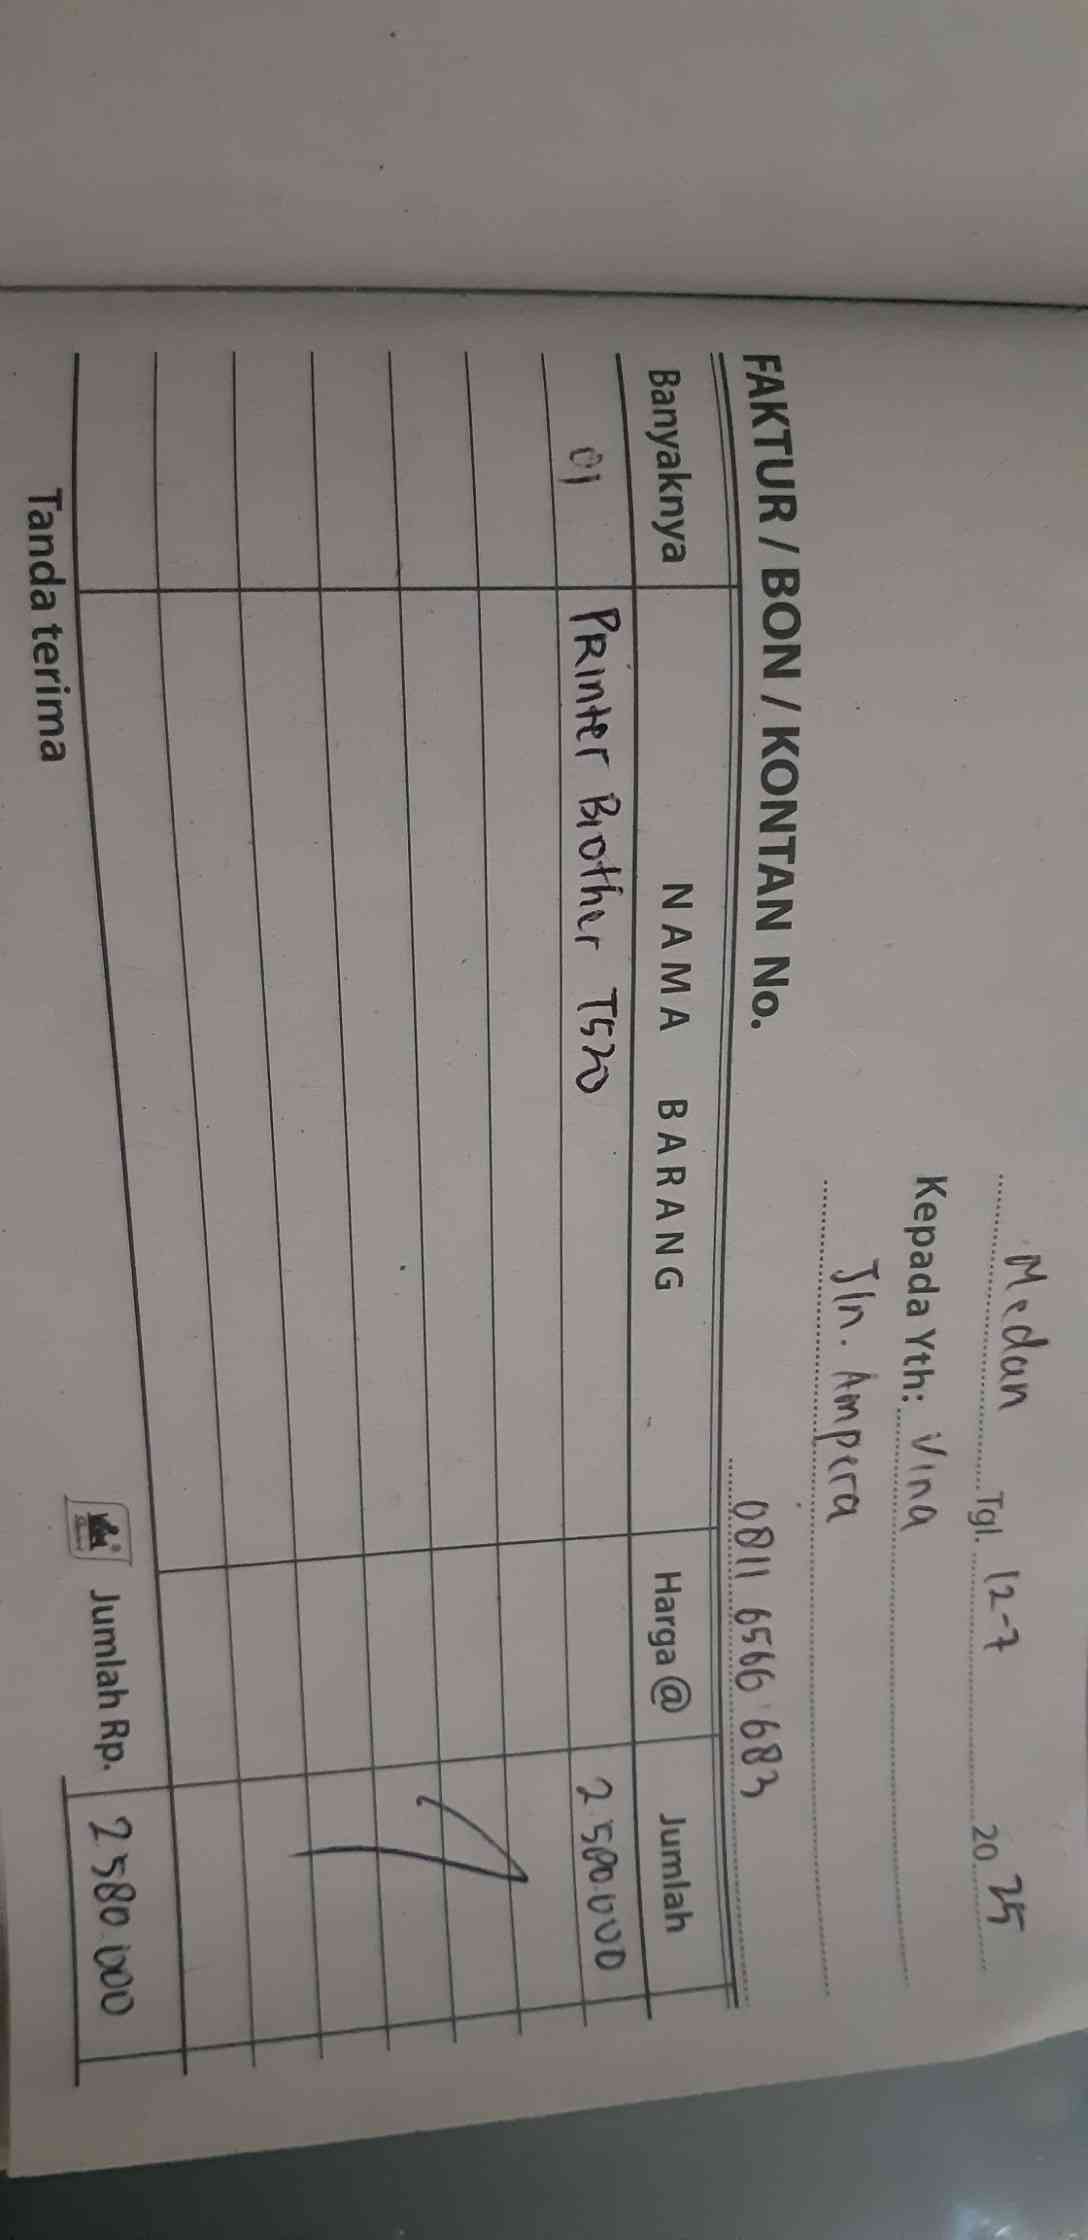 Medan Tgl. 12-7 20 25
Kepada Yth: Vina
Jln. Ampera
0811 6566 683
FAKTUR / BON / KONTAN No.
Banyaknya NAMA BARANG Harga @ Jumlah
01 Printer Brother T520 2 580.000
Jumlah Rp. 2 580.000
Tanda terima